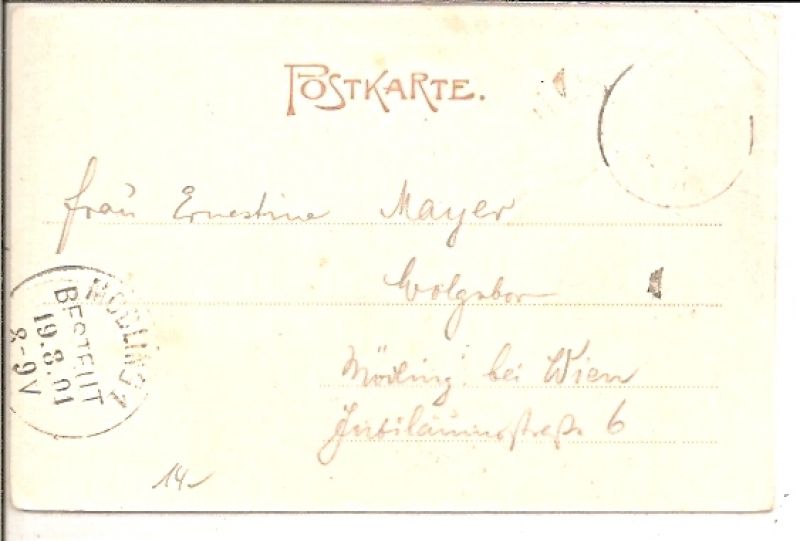 POSTKARTE.
Frau Ernestine Mayer
Mödling bei Wien
Jubiläumsstraße 6
MÖDLING 1
BESTELLT
19.8.01
8-9V
14-